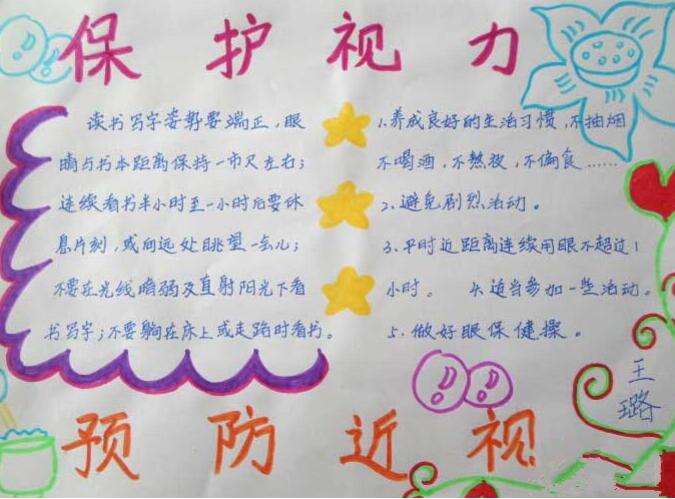 保护视力
读书写字姿势要端正,眼
睛与书本距离保持一市尺左右;
连续看书半小时至一小时后要休
息片刻,或向远处眺望一会儿;
不要在光线暗弱及直射阳光下看
书写字;不要躺在床上或走路时看书。
1.养成良好的生活习惯,不抽烟
不喝酒,不熬夜,不偏食……
2.避免剧烈活动。
3.平时近距离连续用眼不超过1
小时。 4.适当参加一些活动。
5.做好眼保健操。
王
璐
预防近视